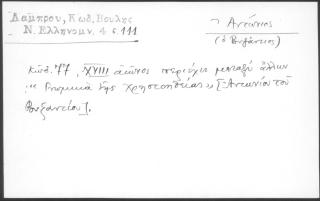 Λάμπρου, Κωδ. Βουλῆς
Ν. Ἑλληνομν. 4 σ. 111
Ἀντώνιος
(ὁ Βυζάντιος)
Κώδ. 77, XVIII αἰῶνος περιέχει μεταξὺ ἄλλων
"Γνωμικὰ τῆς χρηστοηθείας" [Ἀντωνίου τοῦ
Βυζαντίου].